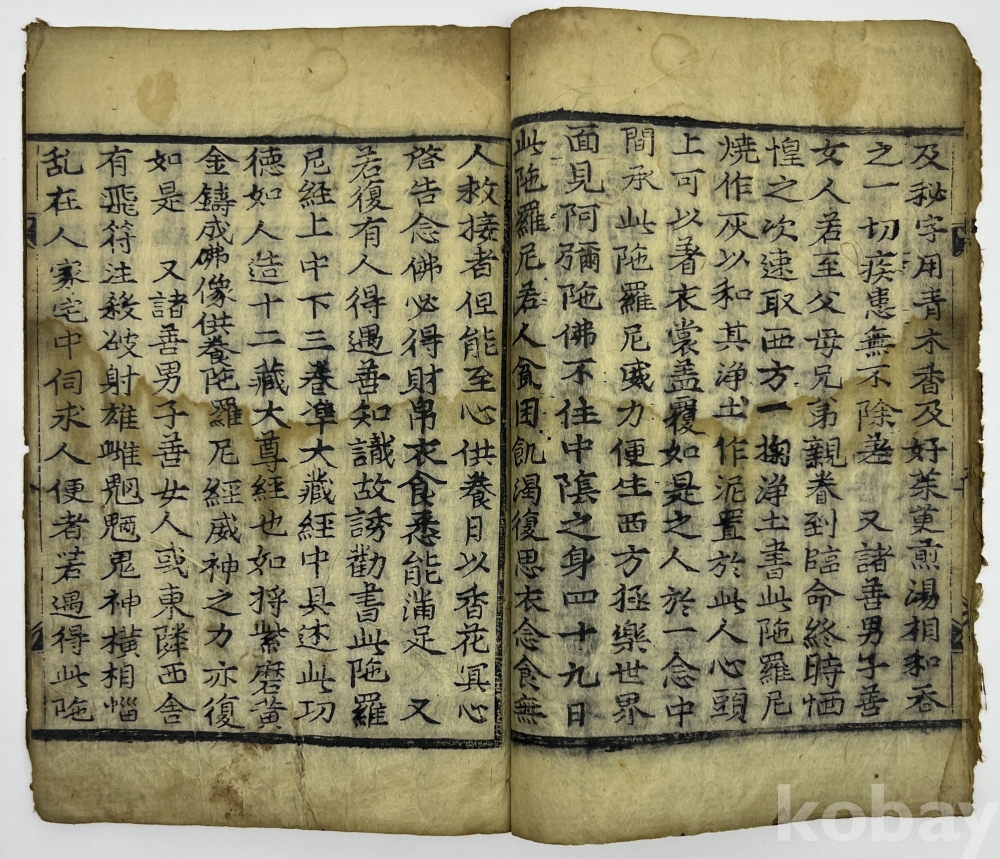 及秘字用青木香及好茱萸煎湯相和呑
之一切疾患無不除差 又諸善男子善
女人若至父母兄弟親眷到臨命終時恓
惶之次速取西方一掬浄土書此陁羅尼
燒作灰以和其浄土作泥置於此人心頭
上可以著衣裳盖覆如是之人於一念中
間承此陁羅尼威力便生西方極樂世界
面見阿彌陁佛不住中隂之身四十九日
此陁羅尼若人貧困飢渴復思衣念食無
人救接者但能至心供養日以香花冥心
啓告念佛必得財帛衣食悉能滿足 又
若復有人得遇善知識故誘勸書此陁羅
尼経上中下三巻准大藏経中具述此功
徳如人造十二藏大尊経也如将紫磨黄
金鑄成佛像供養陁羅尼經威神之力亦復
如是 又諸善男子善女人或東隣西舎
有飛符注殺破射雄雌魍魎鬼神横相惱
乱在人家宅中伺求人便者若遇得此陁
kobay